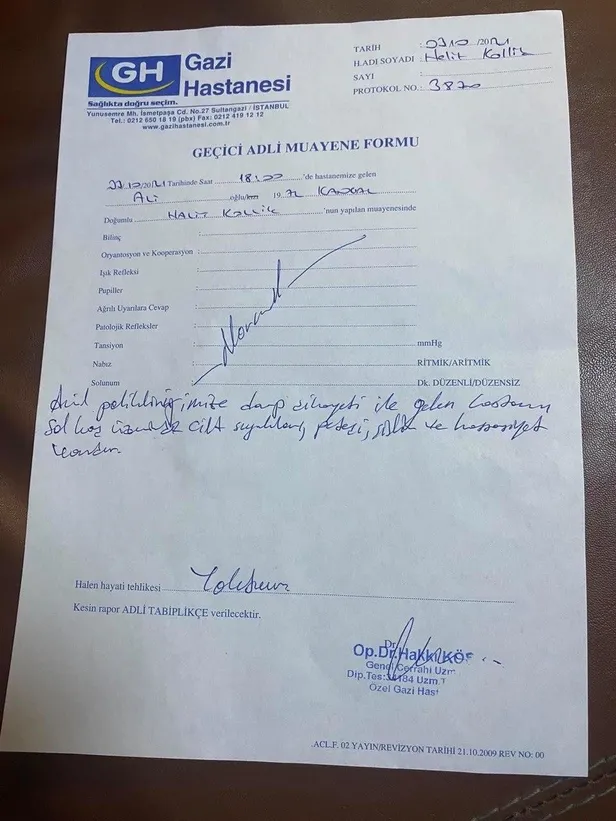 GH Gazi
Hastanesi
Sağlıkta doğru seçim.
Yunusemre Mh. İsmetpaşa Cd. No.27 Sultangazi / İSTANBUL
Tel.: 0212 650 18 19 (pbx) Fax: 0212 419 12 12
www.gazihastanesi.com.tr
TARİH : 03 10 /2021
H.ADI SOYADI : Halit
SAYI :
PROTOKOL NO. : 3870
GEÇİCİ ADLİ MUAYENE FORMU
10/2021 Tarihinde Saat 18:00 'de hastanemize gelen
Ali oğlu/kızı 19 72
Doğumlu HALİT 'nun yapılan muayenesinde
Bilinç :
Oryantosyon ve Kooperasyon :
Işık Refleksi :
Pupiller :
Ağrılı Uyarılara Cevap :
Patolojik Refleksler :
Tansiyon : mmHg
Nabız : RİTMİK/ARİTMİK
Solunum : Dk. DÜZENLİ/DÜZENSİZ
Normal
Acil polikliniğimize darp şikayeti ile gelen hastanın
Sol kaş üzerinde cilt sıyrıkları, peteşi, şişlik ve hassasiyet
vardır.
Halen hayati tehlikesi Yoktur
Kesin rapor ADLİ TABİPLİKÇE verilecektir.
Dr.
Op.Dr.Hakkı KÖS
Genel Cerrahi Uzm.
Dip.Tes: 184 Uzm.T
Özel Gazi Hast
.ACL.F. 02 YAYIN/REVİZYON TARİHİ 21.10.2009 REV NO: 00